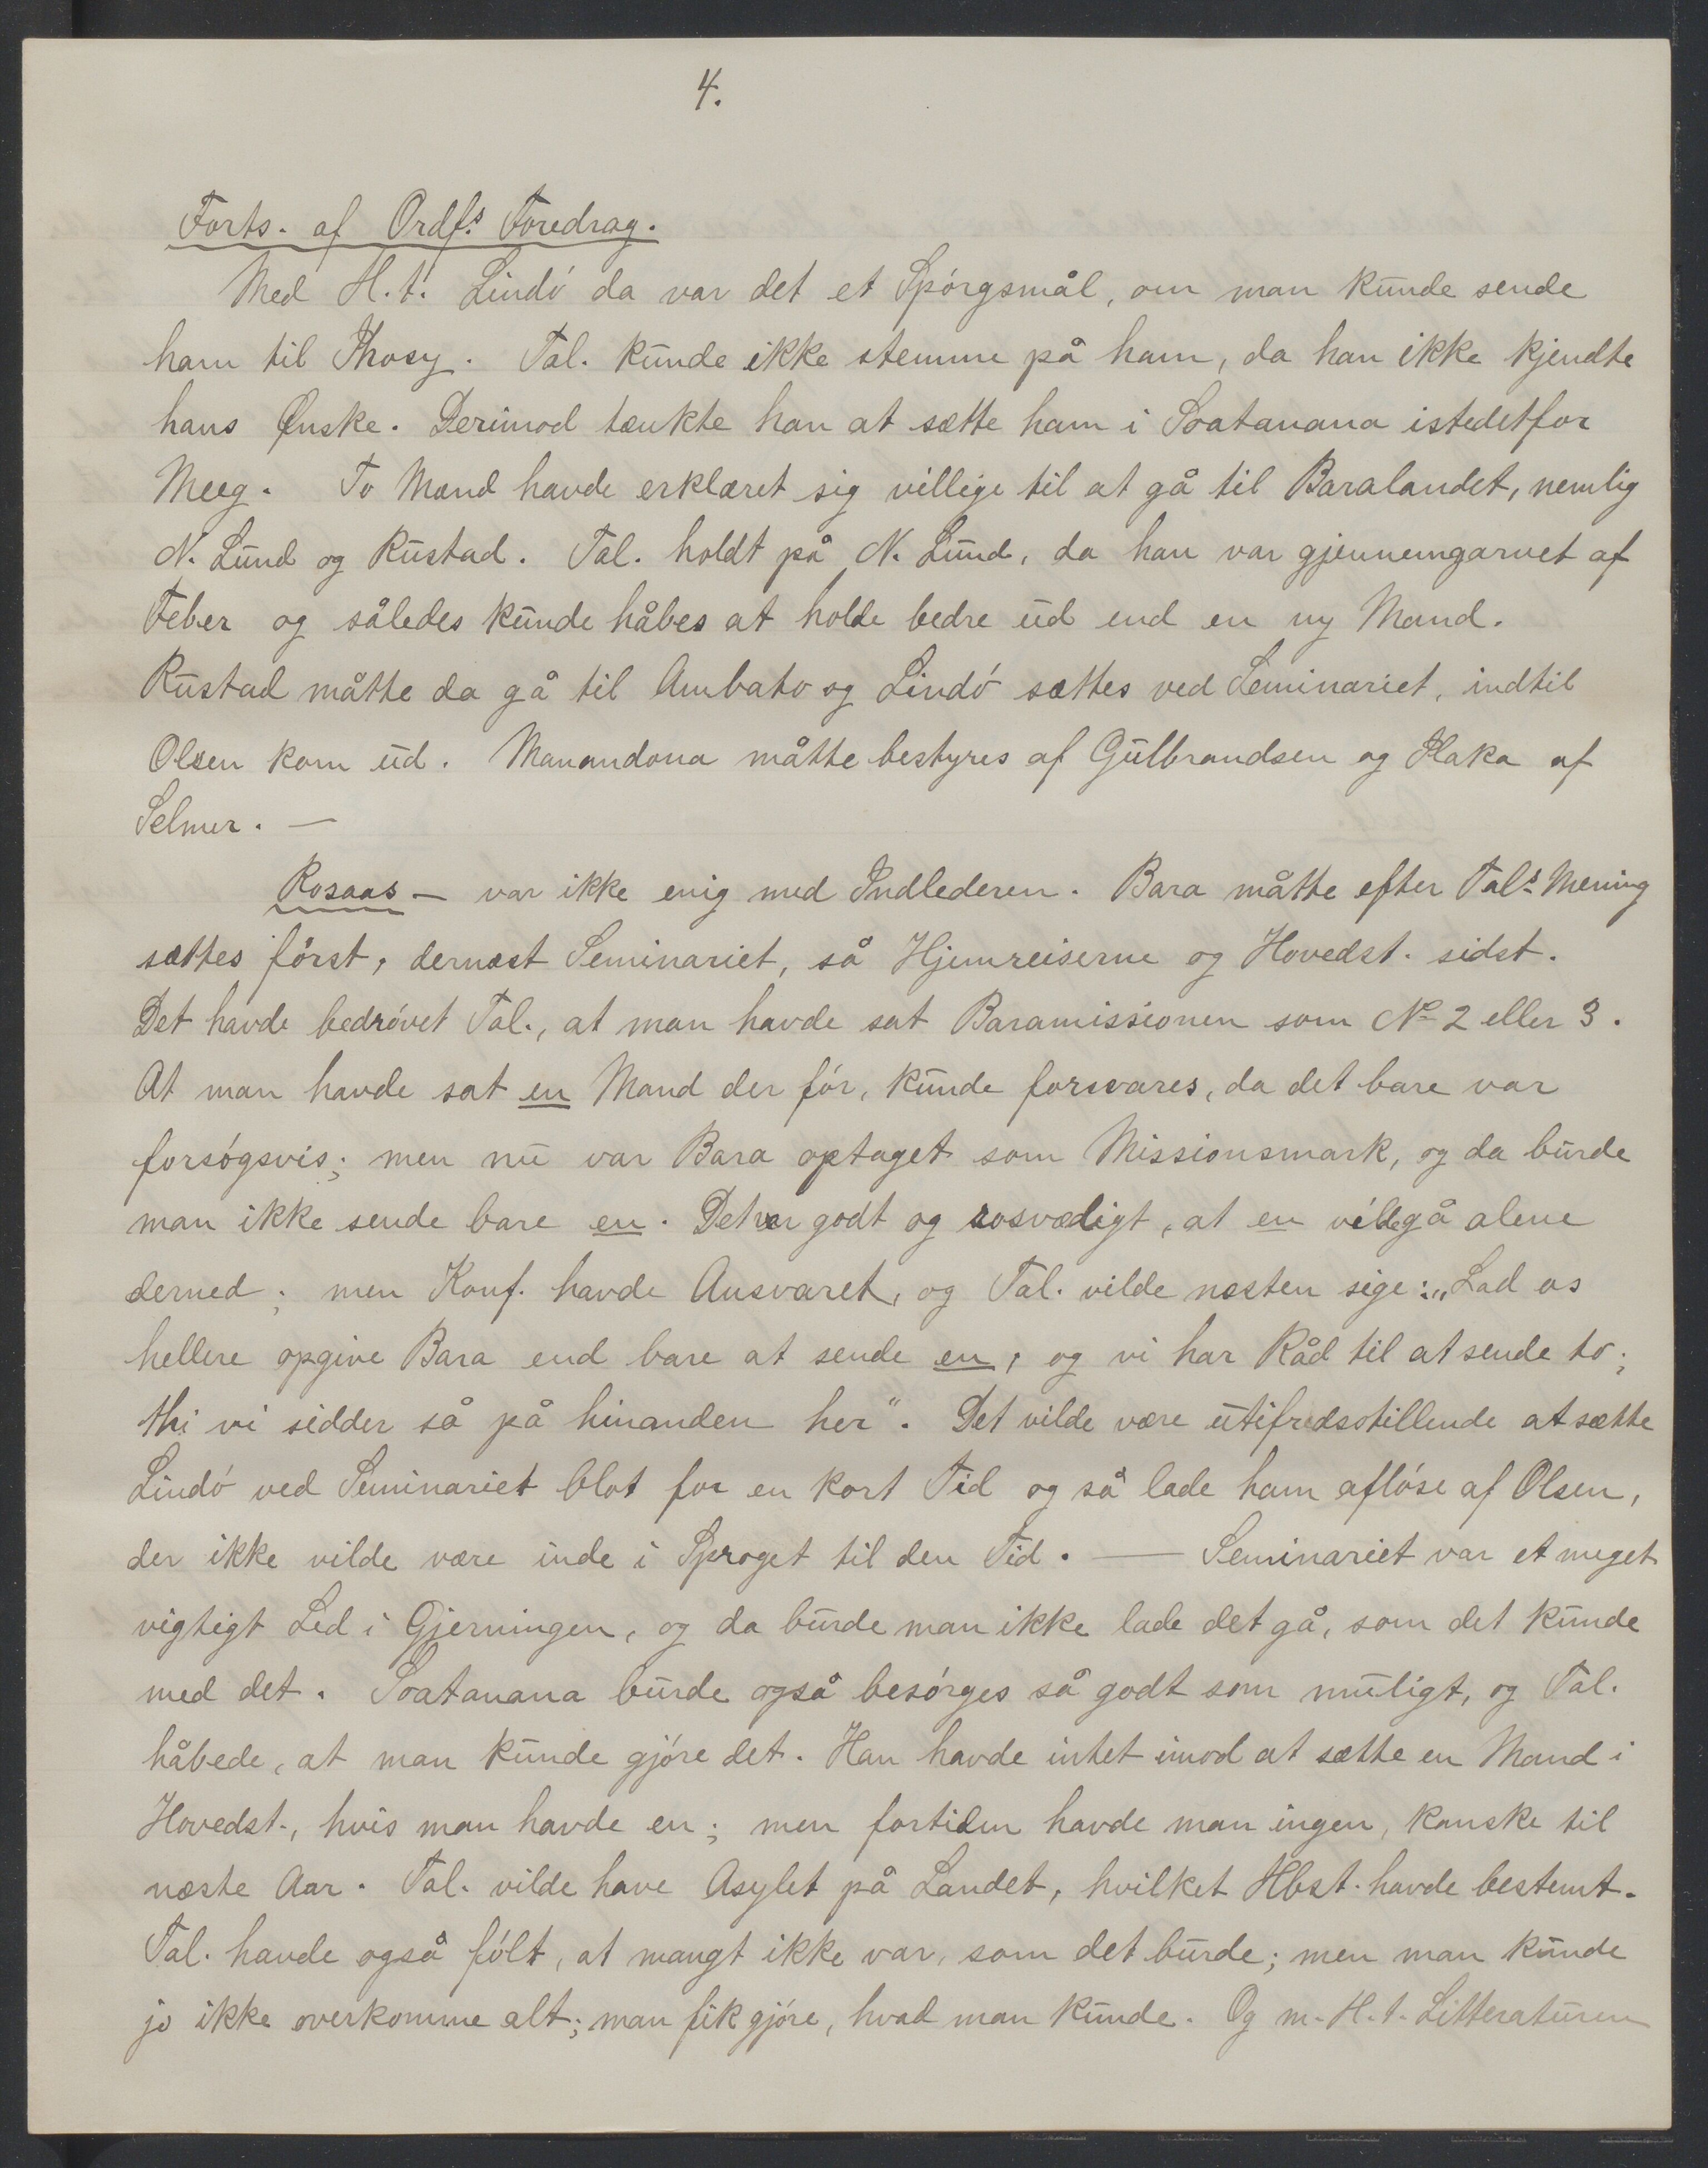 4.
Forts. af Ordf.s Foredrag.
Med H.t. Lindó da var det et Spórgsmål, om man kunde sende
ham til Ihosy. Tal. kunde ikke stemme på ham, da han ikke kjendte
hans Ønske. Derimod tænkte han at sætte ham i Soatanana istedetfor
Meeg. To Mænd havde erklæret sig villige til at gå til Baralandet, nemlig
N. Lund og Rustad. Tal. holdt på N. Lund, da han var gjennemgarvet af
Feber og således kunde håbes at holde bedre ud end en ny Mand.
Rustad måtte da gå til Ambato og Lindó sættes ved Seminariet, indtil
Olsen kom ud. Manandona måtte bestyres af Gulbrandsen og Ilaka af
Selmer. —
Rosaas — var ikke enig med Indlederen. Bara måtte efter Tals Mening
sættes fórst, dernæst Seminariet, så Hjemreiserne og Hovedst. sidst.
Det havde bedróvet Tal., at man havde sat Baramissionen som No 2 eller 3.
At man havde sat en Mand der fór, kunde forsvares, da det bare var
forsógsvis; men nu var Bara optaget som Missionsmark, og da burde
man ikke sende bare en. Det var godt og rosværdigt, at en vilde gå alene
derned; men Konf. havde Ansvaret, og Tal. vilde næsten sige: „Lad os
hellere opgive Bara end bare at sende en, og vi har Råd til at sende to;
thi vi sidder så på hinanden her“. Det vilde være utifredsstillende at sætte
Lindó ved Seminariet blot for en kort Tid og så lade ham aflóse af Olsen,
der ikke vilde være inde i Sproget til den Tid. — Seminariet var et meget
vigtigt Led i Gjerningen, og da burde man ikke lade det gå, som det kunde
med det. Soatanana burde også besórges så godt som muligt, og Tal.
håbede, at man kunde gjóre det. Han havde intet imod at sætte en Mand i
Hovedst., hvis man havde en; men fortiden havde man ingen, kanske til
næste Aar. Tal. vilde have Asylet på Landet, hvilket Hbst. havde bestemt.
Tal. havde også fólt, at mangt ikke var, som det burde; men man kunde
jo ikke overkomme alt; man fik gjóre, hvad man kunde. Og m. H. t. Litteraturen